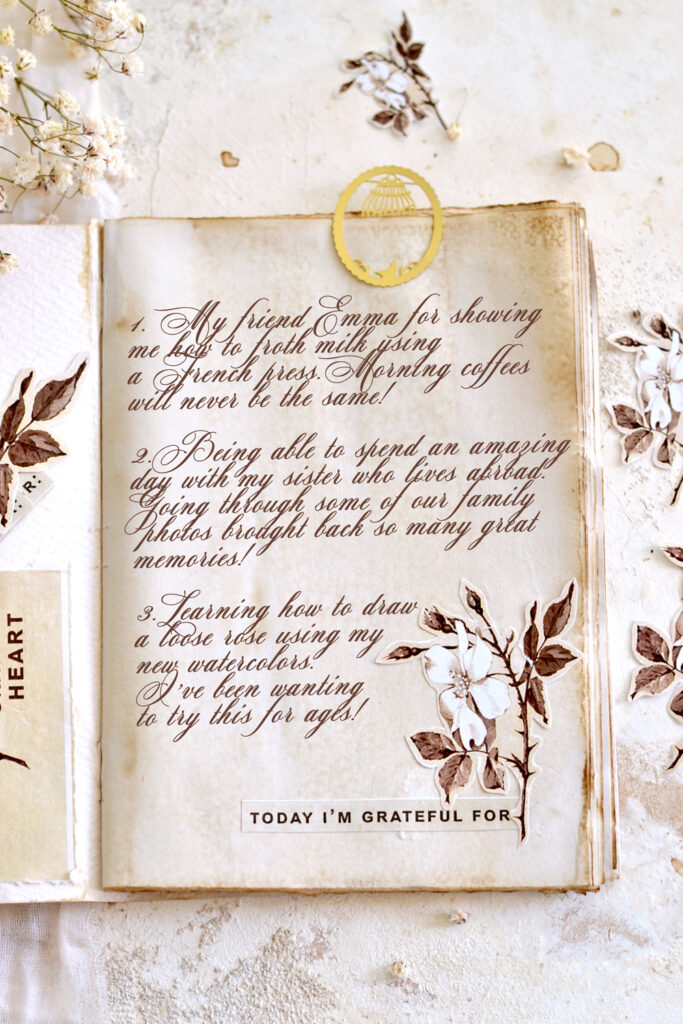 1. My friend Emma for showing
me how to froth milk using
a French press. Morning coffees
will never be the same!
2. Being able to spend an amazing
day with my sister who lives abroad.
Going through some of our family
photos brought back so many great
memories!
3. Learning how to draw
a loose rose using my
new watercolors.
I've been wanting
to try this for ages!
TODAY I'M GRATEFUL FOR
HEART
R: